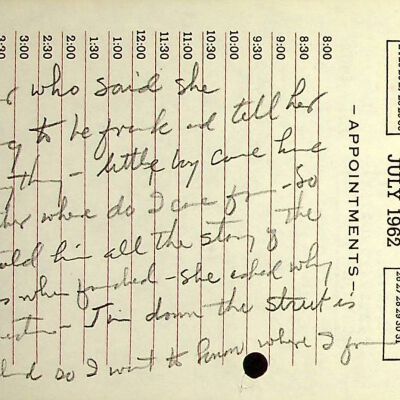 who said she
to be frank and tell her
thing - little boy came home
where do I come from - So
told him all the story of the
when finished - she asked why
- Jim down the street is
and so I want to know where I from
8:00
8:30
9:00
9:30
10:00
10:30
11:00
11:30
12:00
1:00
1:30
2:00
2:30
3:00
3:30
—APPOINTMENTS—
JULY 1962